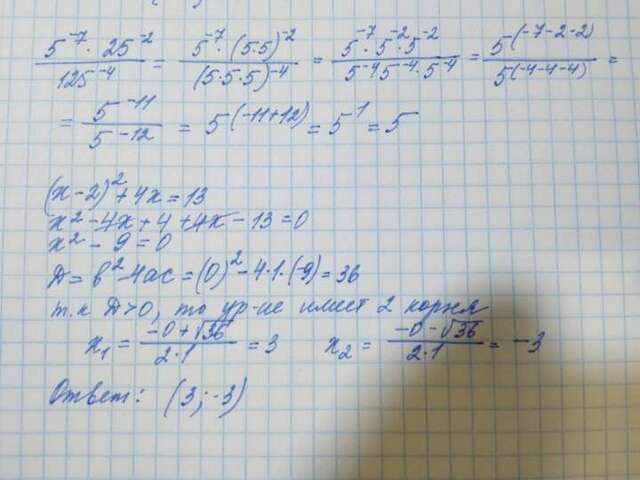 5⁻⁷ · 25⁻² / 125⁻⁴ = 5⁻⁷ · (5·5)⁻² / (5·5·5)⁻⁴ = 5⁻⁷ · 5⁻² · 5⁻² / 5⁻⁴ · 5⁻⁴ · 5⁻⁴ = 5^(-7-2-2) / 5^(-4-4-4) =
= 5⁻¹¹ / 5⁻¹² = 5^(-11+12) = 5¹ = 5
(x-2)² + 4x = 13
x² - 4x + 4 + 4x - 13 = 0
x² - 9 = 0
Д = в² - 4ас = (0)² - 4·1·(-9) = 36
т.к Д > 0, то ур-ие имеет 2 корня
x₁ = -0 + √36 / 2·1 = 3 x₂ = -0 - √36 / 2·1 = -3
Ответ: (3; -3)